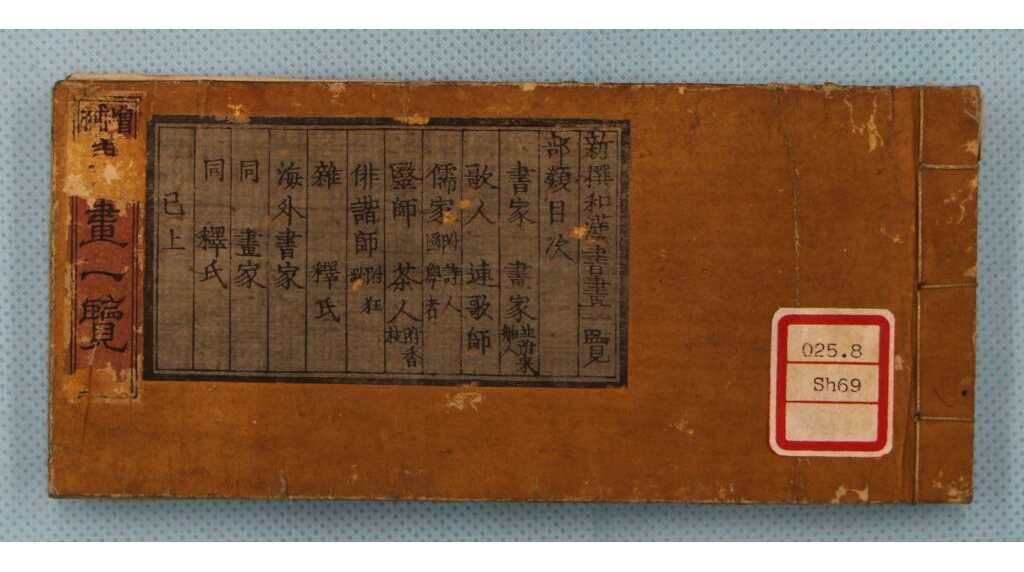 新撰和漢書畫一覽
部類目次
書家 畫家
歌人 連歌師
儒家 附詩人 國學者
醫師 茶人 附香
俳諧師 附狂
雜 釋氏
海外書家
同 畫家
同 釋氏
已上
增補
畫一覽
025.8
Sh69